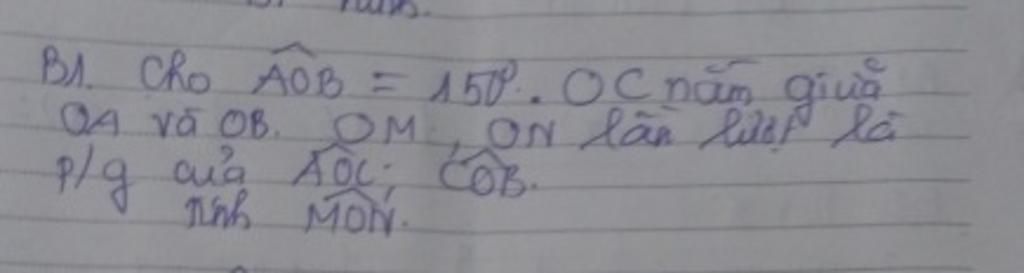 B1. Cho AÔB = 150°. OC nằm giữa
OA và OB. OM, ON lần lượt là
p/g của AÔC; CÔB.
Tính MÔN.